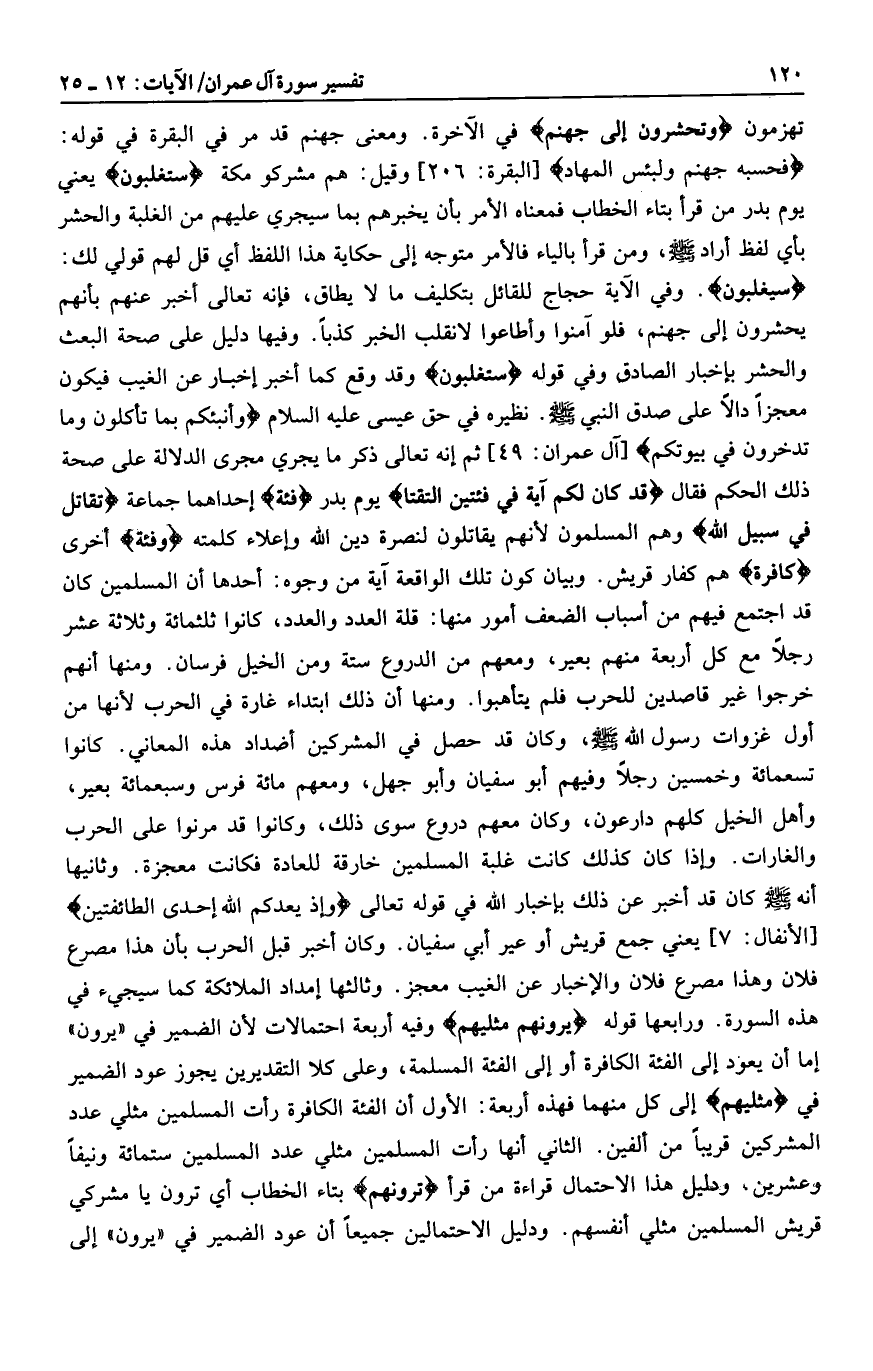 ١٢٠
تفسير سورة آل عمران/ الآيات: ١٢ ـ ٢٥
تهزمون ﴿وتحشرون إلى جهنم﴾ في الآخرة. ومعنى جهنم قد مر في البقرة في قوله:
﴿فحسبه جهنم ولبئس المهاد﴾ [البقرة: ٢٠٦] وقيل: هم مشركو مكة ﴿ستغلبون﴾ يعني
يوم بدر من قرأ بتاء الخطاب فمعناه الأمر بأن يخبرهم بما سيجري عليهم من الغلبة والحشر
بأي لفظ أراد ﷺ، ومن قرأ بالياء فالأمر متوجه إلى حكاية هذا اللفظ أي قل لهم قولي لك:
﴿سيغلبون﴾. وفي الآية حجاج للقائل بتكليف ما لا يطاق، فإنه تعالى أخبر عنهم بأنهم
يحشرون إلى جهنم، فلو آمنوا وأطاعوا لانقلب الخبر كذباً. وفيها دليل على صحة البعث
والحشر بإخبار الصادق وفي قوله ﴿ستغلبون﴾ وقد وقع كما أخبر إخبار عن الغيب فيكون
معجزاً دالاً على صدق النبي ﷺ. نظيره في حق عيسى عليه السلام ﴿وأنبئكم بما تأكلون وما
تدخرون في بيوتكم﴾ [آل عمران: ٤٩] ثم إنه تعالى ذكر ما يجري مجرى الدلالة على صحة
ذلك الحكم فقال ﴿قد كان لكم آية في فئتين التقتا﴾ يوم بدر ﴿فئة﴾ إحداهما جماعة ﴿تقاتل
في سبيل الله﴾ وهم المسلمون لأنهم يقاتلون لنصرة دين الله وإعلاء كلمته ﴿وفئة﴾ أخرى
﴿كافرة﴾ هم كفار قريش. وبيان كون تلك الواقعة آية من وجوه: أحدها أن المسلمين كان
قد اجتمع فيهم من أسباب الضعف أمور منها: قلة العدد والعدد، كانوا ثلثمائة وثلاثة عشر
رجلاً مع كل أربعة منهم بعير، ومعهم من الدروع ستة ومن الخيل فرسان. ومنها أنهم
خرجوا غير قاصدين للحرب فلم يتأهبوا. ومنها أن ذلك ابتداء غارة في الحرب لأنها من
أول غزوات رسول الله ﷺ، وكان قد حصل في المشركين أضداد هذه المعاني. كانوا
تسعمائة وخمسين رجلاً وفيهم أبو سفيان وأبو جهل، ومعهم مائة فرس وسبعمائة بعير،
وأهل الخيل كلهم دارعون، وكان معهم دروع سوى ذلك، وكانوا قد مرنوا على الحرب
والغارات. وإذا كان كذلك كانت غلبة المسلمين خارقة للعادة فكانت معجزة. وثانيها
أنه ﷺ كان قد أخبر عن ذلك بإخبار الله في قوله تعالى ﴿وإذ يعدكم الله إحدى الطائفتين﴾
[الأنفال: ٧] يعني جمع قريش أو عير أبي سفيان. وكان أخبر قبل الحرب بأن هذا مصرع
فلان وهذا مصرع فلان والإخبار عن الغيب معجز. وثالثها إمداد الملائكة كما سيجيء في
هذه السورة. ورابعها قوله ﴿يرونهم مثليهم﴾ وفيه أربعة احتمالات لأن الضمير في «يرون»
إما أن يعود إلى الفئة الكافرة أو إلى الفئة المسلمة، وعلى كلا التقديرين يجوز عود الضمير
في ﴿مثليهم﴾ إلى كل منهما فهذه أربعة: الأول أن الفئة الكافرة رأت المسلمين مثلي عدد
المشركين قريباً من ألفين. الثاني أنها رأت المسلمين مثلي عدد المسلمين ستمائة ونيفاً
وعشرين، ودليل هذا الاحتمال قراءة من قرأ ﴿ترونهم﴾ بتاء الخطاب أي ترون يا مشركي
قريش المسلمين مثلي أنفسهم. ودليل الاحتمالين جميعاً أن عود الضمير في «يرون» إلى